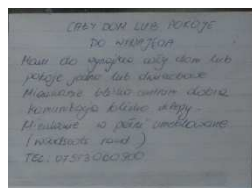 CAŁY DOM LUB POKOJE
DO WYNAJĘCIA
Mam do wynajęcia cały dom lub
pokoje jedno lub dwuosobowe
Mieszkanie blisko centrum dobra
komunikacja blisko sklepy.
Mieszkanie w pełni umeblowane
road)
TEL: 07513060900